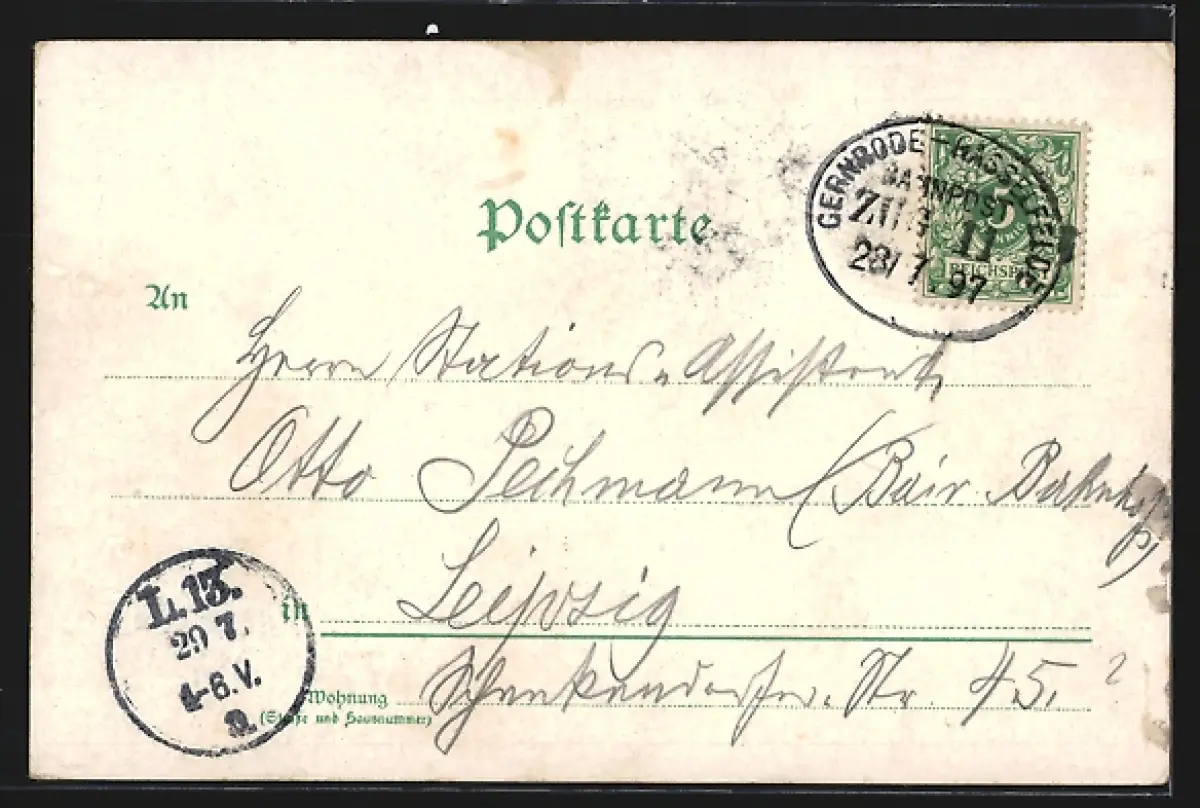 Postkarte
GERNRODE-HASSELFELDE
BAHNPOST
ZUG 11
28/7.97
5
PFENNIG
REICHSPOST
An
Herrn Stations-Assistent
Otto Pechmann (Bair. Bahnhof)
in Leipzig
Wohnung Schenkendorfer. Str. 45.
(Straße und Hausnummer)
L. 13.
29 7.
4-6.V.